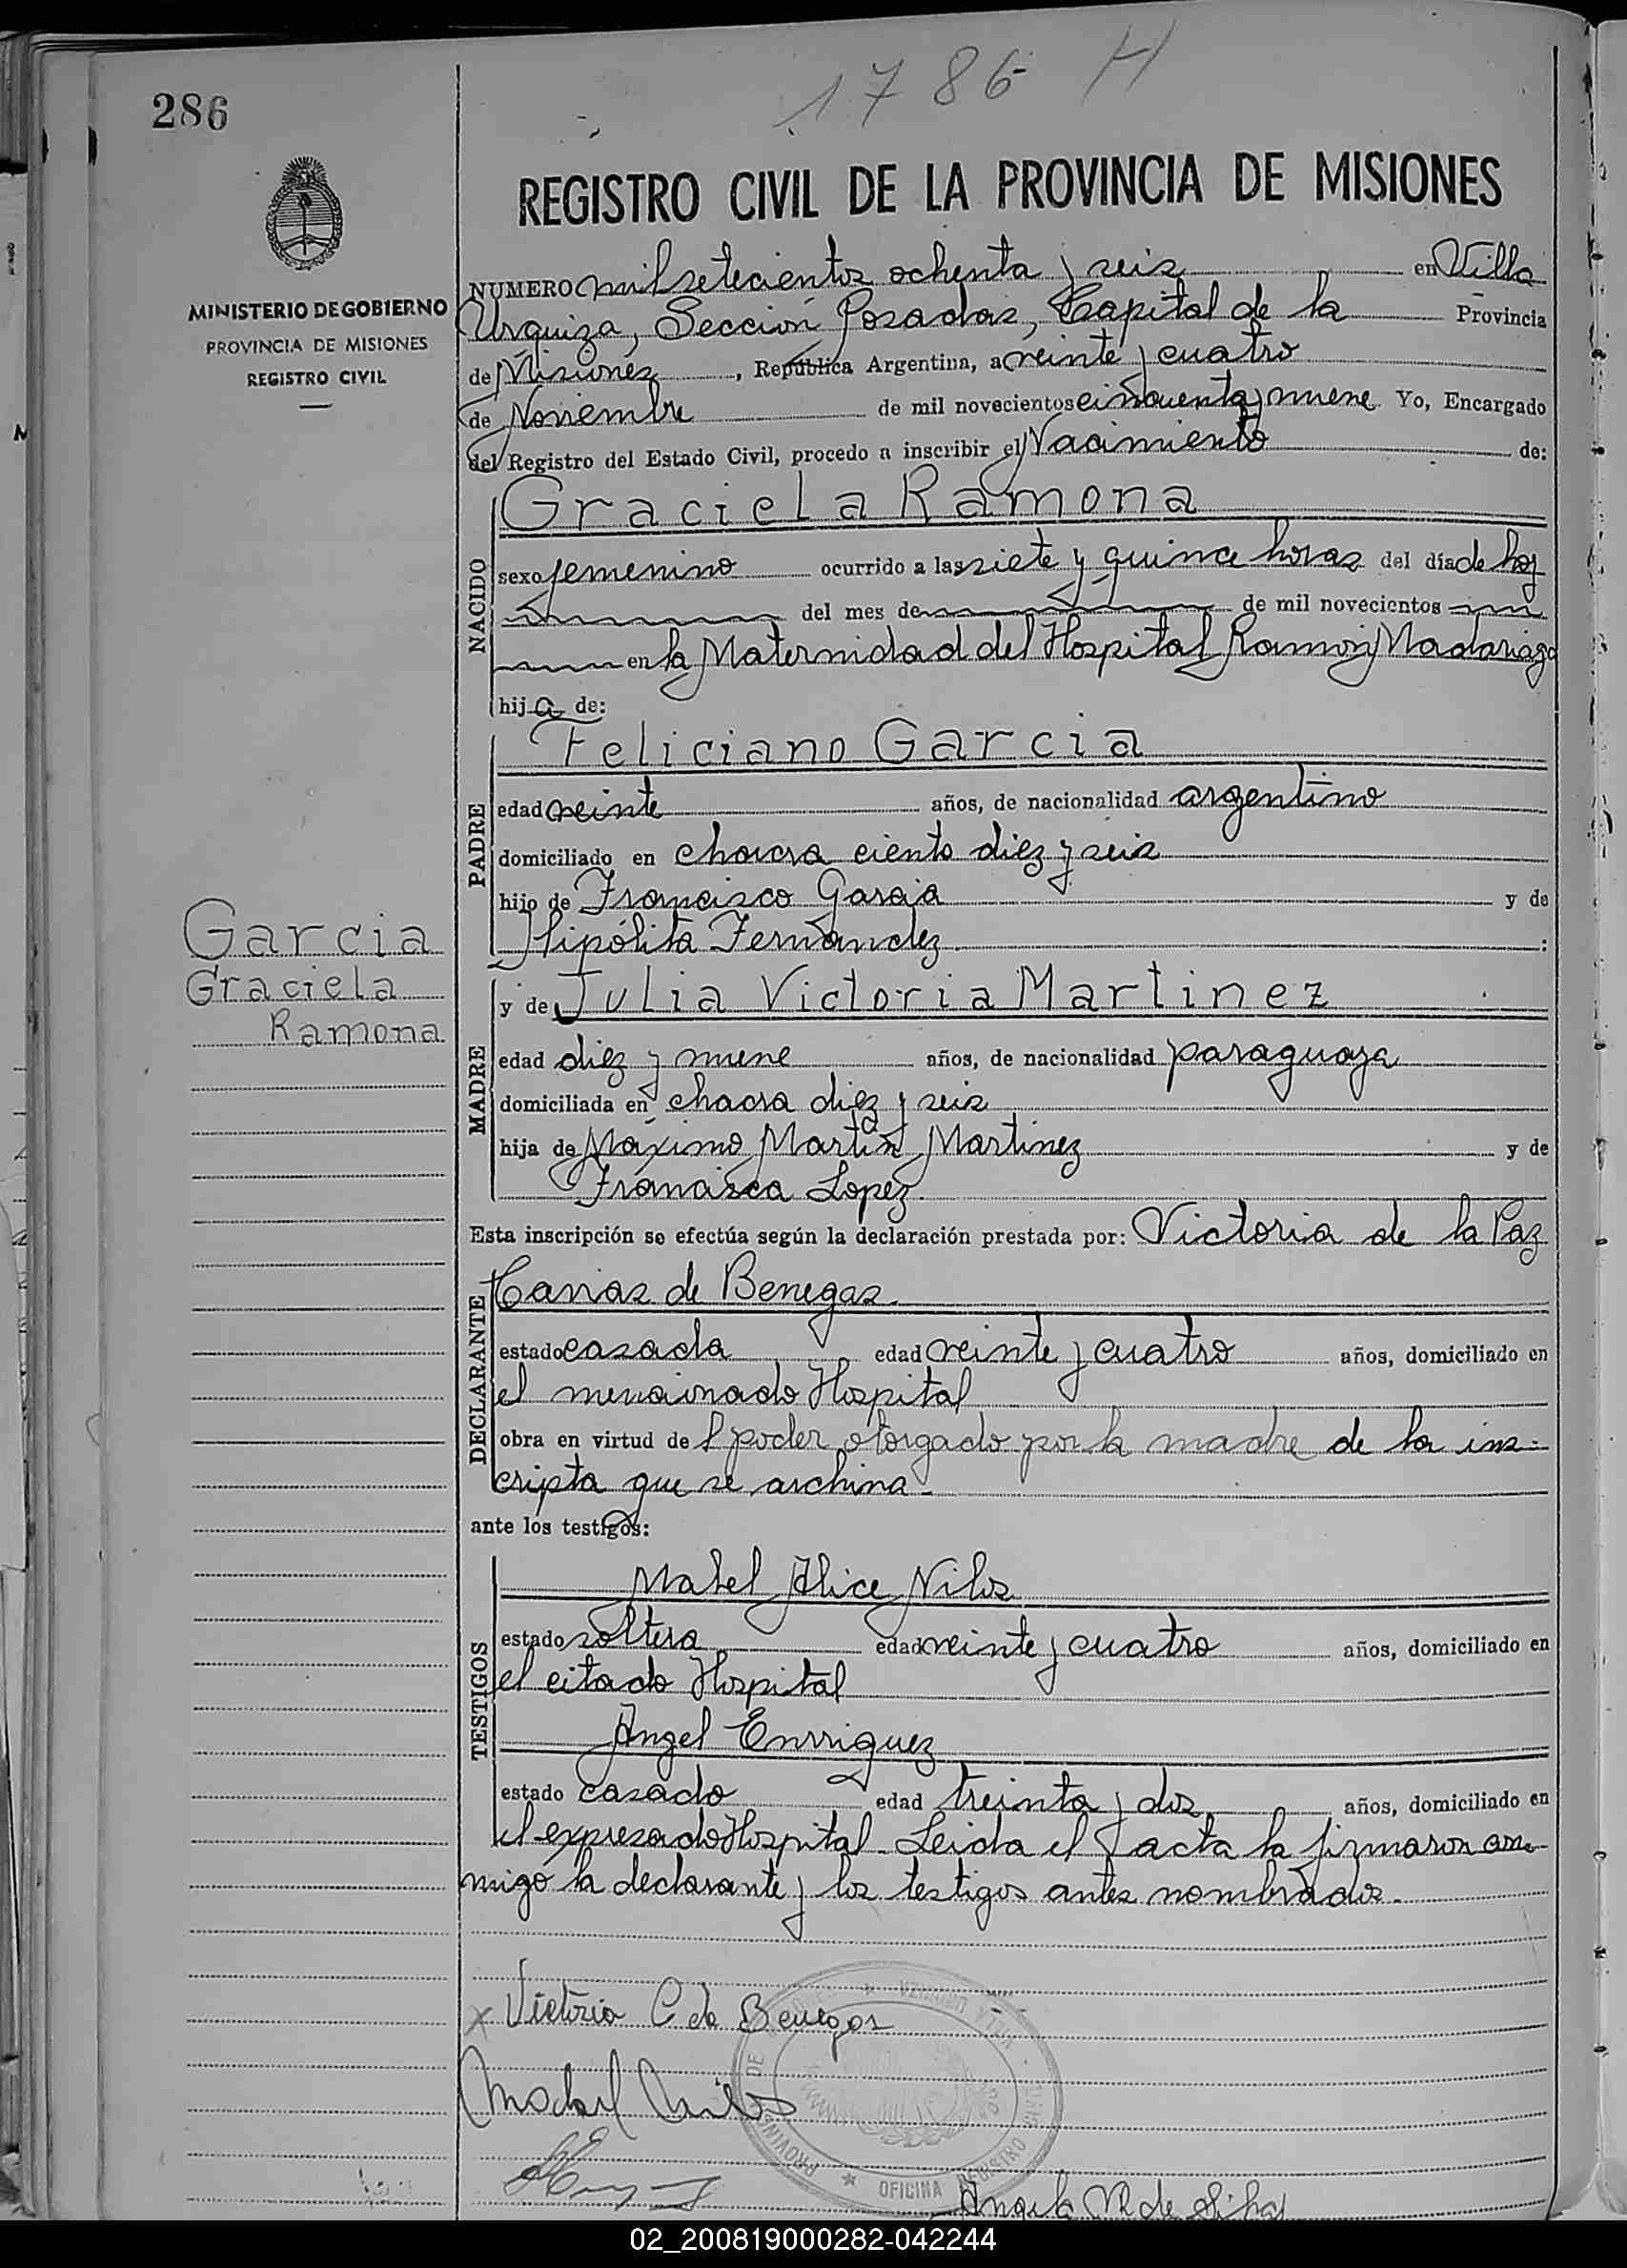 1786 H
286
REGISTRO CIVIL DE LA PROVINCIA DE MISIONES
MINISTERIO DE GOBIERNO
PROVINCIA DE MISIONES
REGISTRO CIVIL
NUMERO mil setecientos ochenta y seis en Villa
Urquiza, Sección Posadas, Capital de la Provincia
de Misiones, República Argentina, a veinte y cuatro
de Noviembre de mil novecientos cincuenta y nueve Yo, Encargado
del Registro del Estado Civil, procedo a inscribir el Nacimiento de:
NACIDO
Graciela Ramona
sexo femenino ocurrido a las siete y quince horas del día de hoy
del mes de de mil novecientos
en la Maternidad del Hospital Ramón Madariaga
hija de:
PADRE
Feliciano Garcia
edad veinte años, de nacionalidad argentino
domiciliado en chacra ciento diez y seis
hijo de Francisco Garcia y de
Hipólita Fernandez :
Garcia
Graciela
Ramona
MADRE
y de Julia Victoria Martinez
edad diez y nueve años, de nacionalidad paraguaya
domiciliada en chacra diez y seis
hija de Máximo Martin Martinez y de
Francisca Lopez.
Esta inscripción se efectúa según la declaración prestada por: Victoria de la Paz
DECLARANTE
de Benegas.
estado casada edad veinte y cuatro años, domiciliado en
el mencionado Hospital
obra en virtud del poder otorgado por la madre de la ins-
cripta que se archiva-
ante los testigos:
TESTIGOS
Mabel Alice Nilos
estado soltera edad veinte y cuatro años, domiciliado en
el citado Hospital
Angel Enrriquez
estado casado edad treinta y dos años, domiciliado en
el expresado Hospital. Leida el acta la firmaron con-
migo la declarante y los testigos antes nombrados.
x Victoria C de Benegas
OFICINA REGISTRO
Angela de
02_200819000282-042244